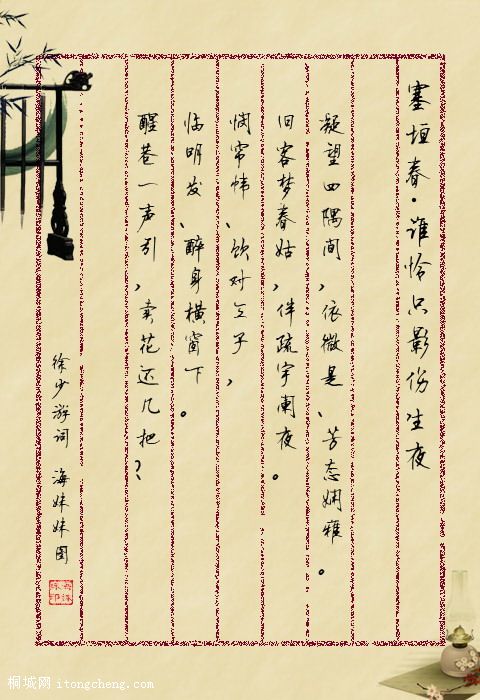 塞垣春·谁怜只影伤生夜
凝望四隅间,依微是、芳态娴雅。
旧客梦春姑,伴疏宇阑夜。
惘帘帏、饮对三子,
临明发、醉身横窗下。
醒巷一声引,卖花还几把?
徐少游词 海妹妹图
桐城网 itongcheng.com